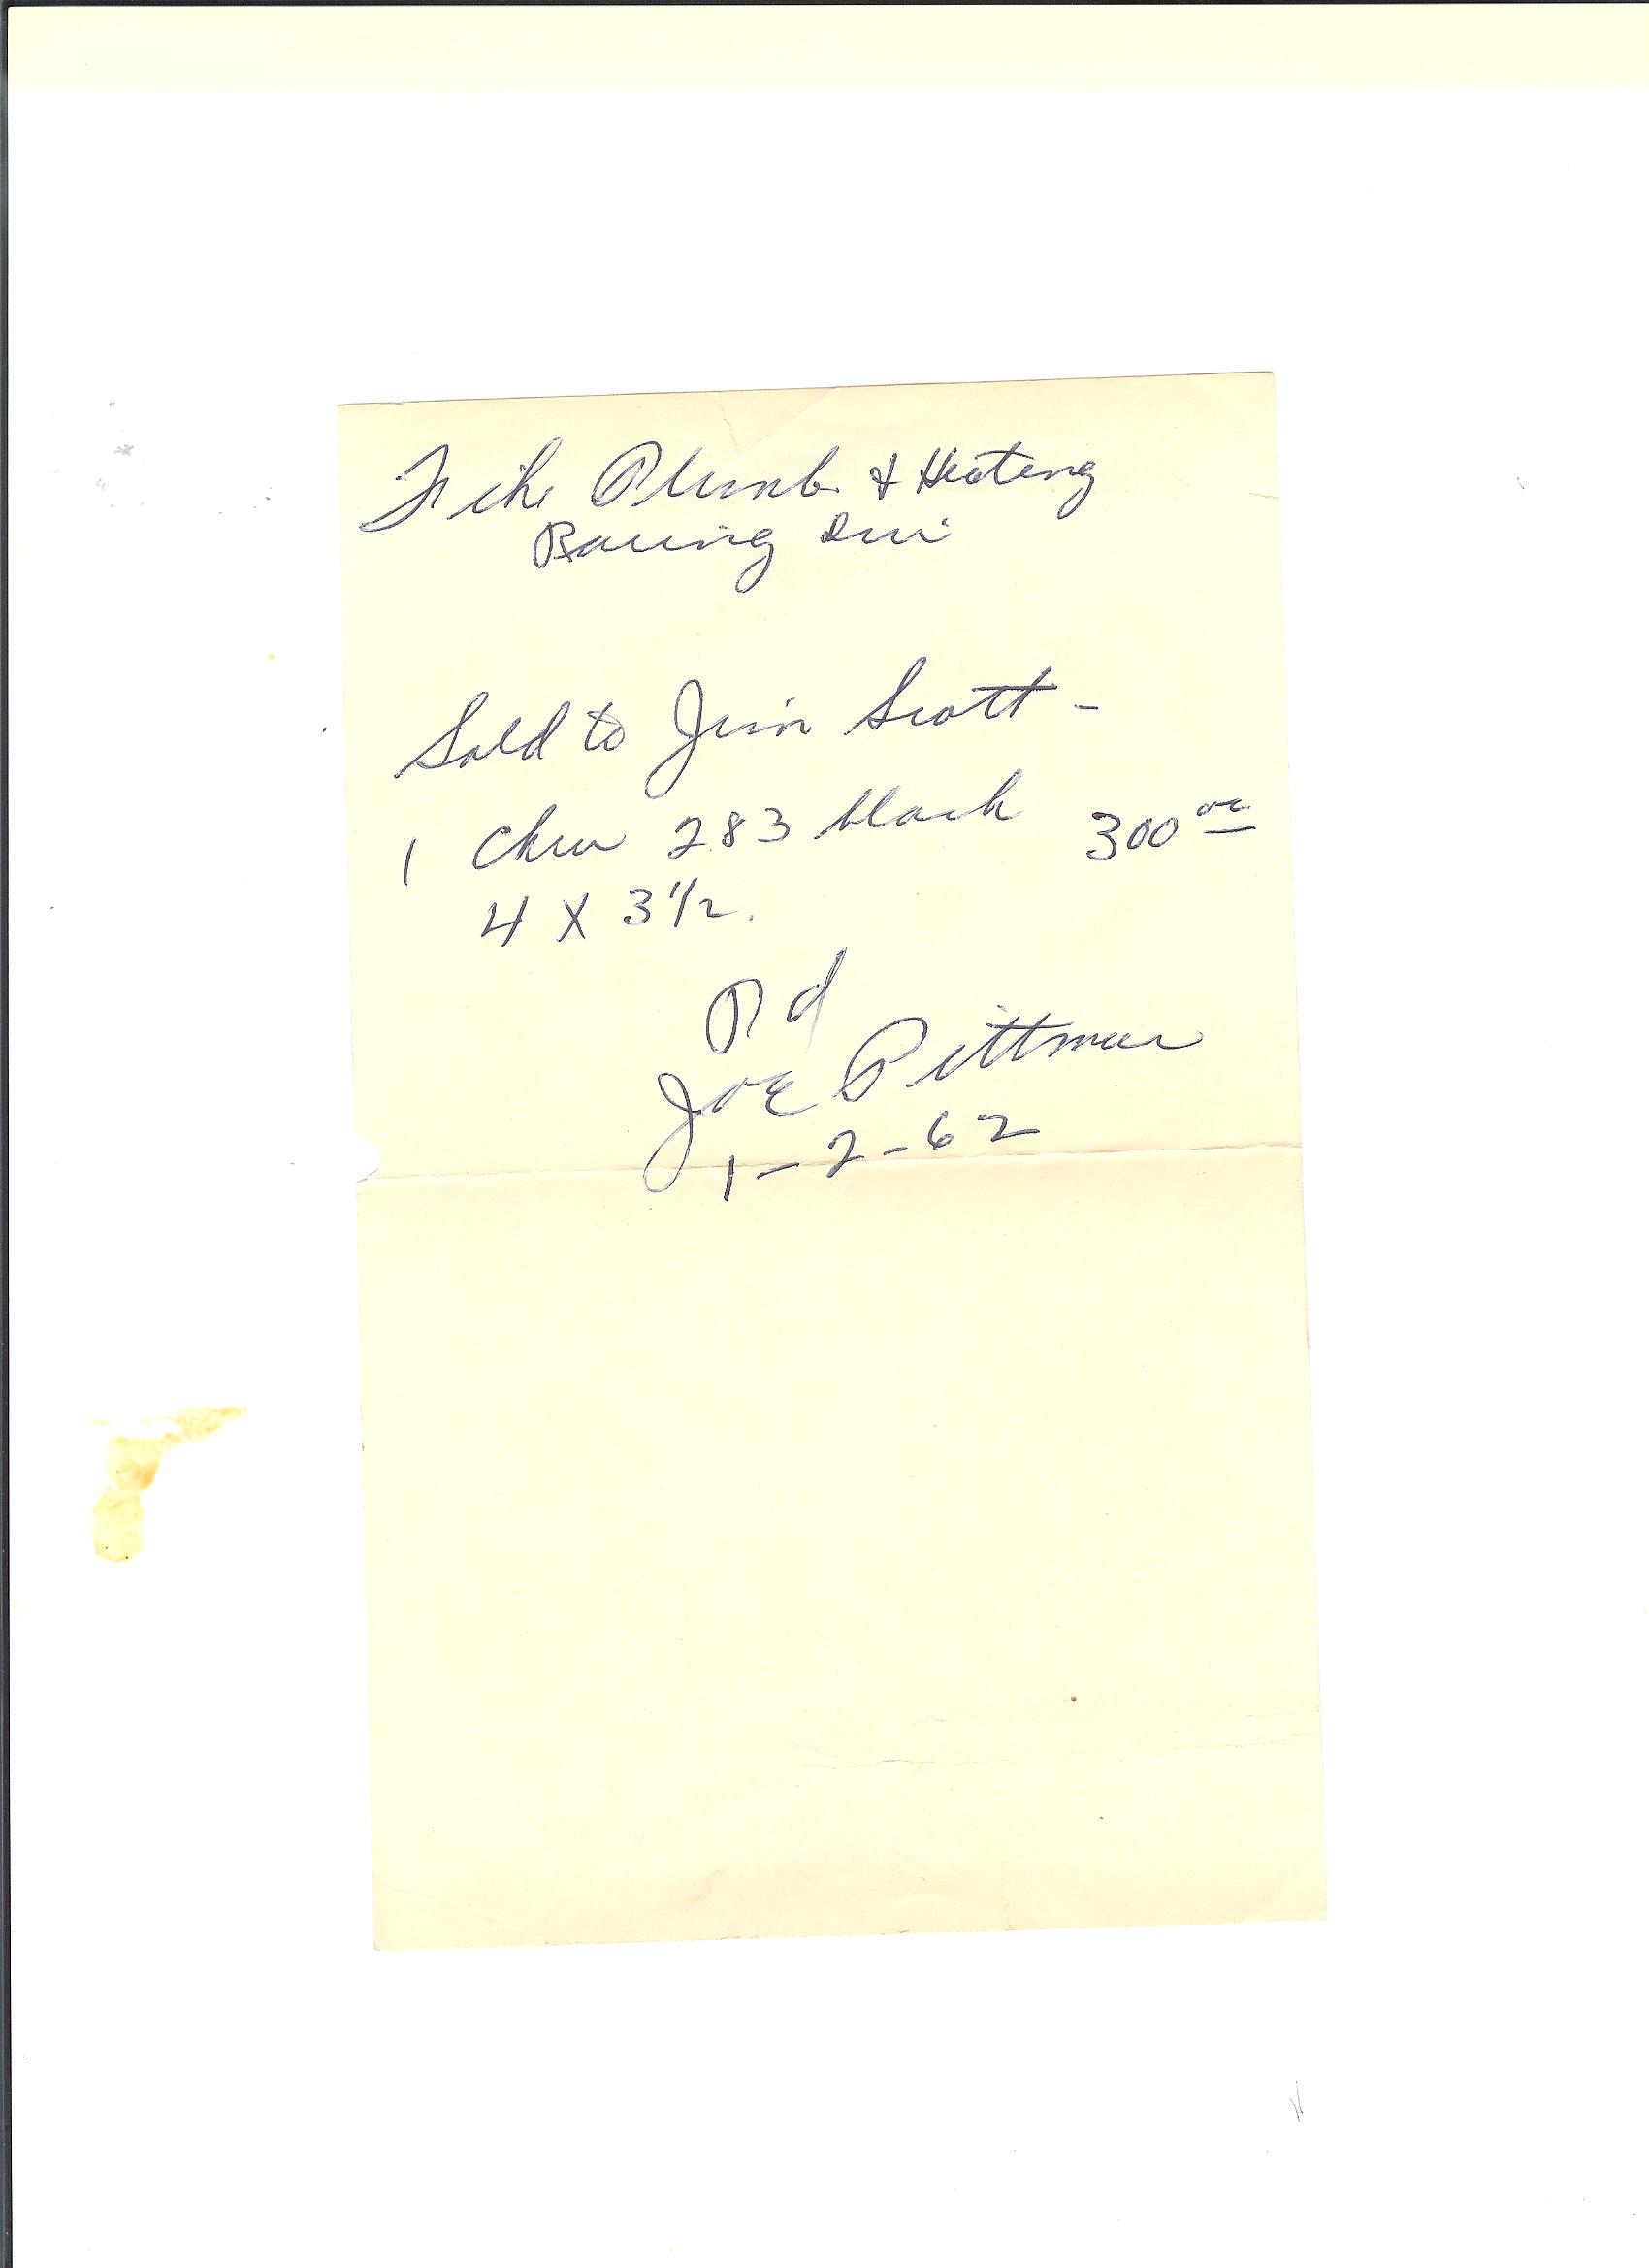 Fike Plumb & Heating
Racing Div
Sold to Jim Scott -
1 Chev 283 block 300 00
4 X 3 1/2.
Pd
Joe Pittman
1-2-62